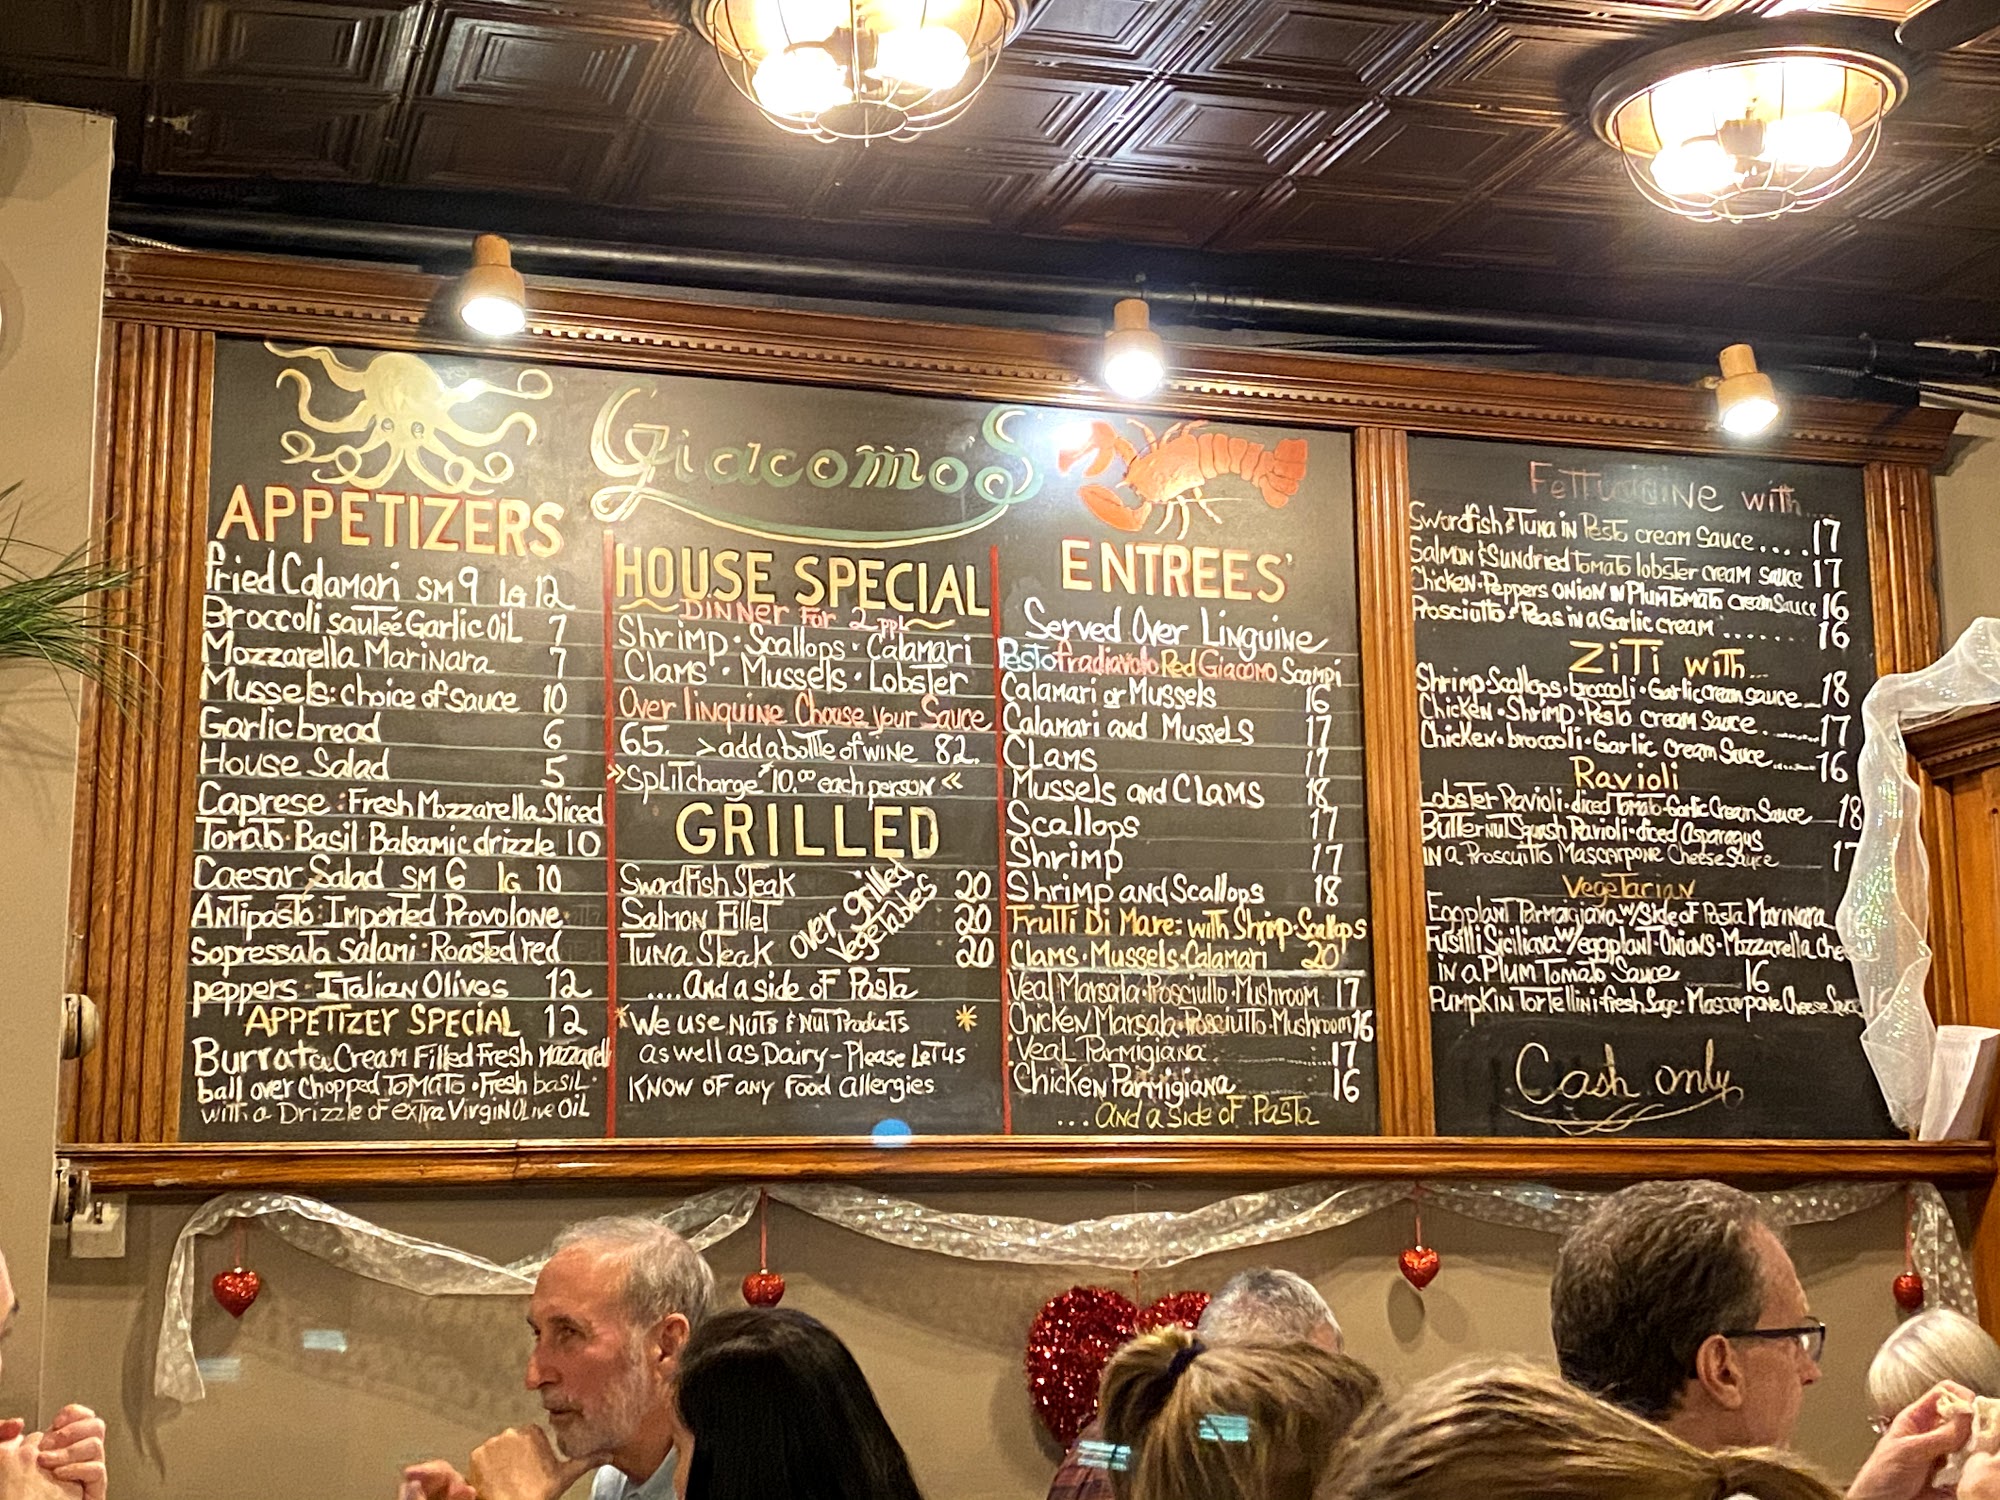 Giacomos
APPETIZERS
Fried Calamari SM 9 LG 12
Broccoli sautéé Garlic Oil 7
Mozzarella Marinara 7
Mussels: choice of sauce 10
Garlic bread 6
House Salad 5
Caprese: Fresh Mozzarella Sliced
Tomato · Basil Balsamic drizzle 10
Caesar Salad SM 6 LG 10
Antipasto: Imported Provolone
Sopressata Salami · Roasted red
peppers · Italian Olives 12
APPETIZER SPECIAL 12
Burrata Cream Filled Fresh
ball over Chopped Tomato · Fresh basil
with a Drizzle of extra Virgin Olive Oil
HOUSE SPECIAL
DINNER For 2 ppl
Shrimp · Scallops · Calamari
Clams · Mussels · Lobster
Over linguine Choose your Sauce
65. > add a bottle of wine 82.
>> Split charge $10.00 each person <<
GRILLED
Swordfish Steak 20
Salmon Fillet 20
Tuna Steak 20
over grilled
vegetables
.... And a side of Pasta
*We use Nuts & Nut Products *
as well as Dairy - Please Let us
Know of any Food Allergies
ENTREES'
Served Over Linguine
Pesto Fradiavolo Red Giacomo Scampi
Calamari or Mussels 16
Calamari and Mussels 17
Clams 17
Mussels and Clams 18
Scallops 17
Shrimp 17
Shrimp and Scallops 18
Frutti Di Mare: with Shrimp · Scallops
Clams · Mussels · Calamari 20
Veal Marsala · Prosciutto · Mushroom 17
Chicken Marsala · Prosciutto · Mushroom 16
Veal Parmigiana ...... 17
Chicken Parmigiana 16
... And a side of Pasta
Fettuccine with....
Swordfish & Tuna in Pesto cream Sauce .... 17
Salmon & Sundried Tomato lobster cream sauce 17
Chicken · Peppers onion in Plum Tomato cream Sauce 16
Prosciutto & Peas in a Garlic cream ....... 16
ZiTi with...
Shrimp · Scallops · broccoli · Garlic cream sauce ... 18
Chicken · Shrimp · Pesto cream Sauce ....... 17
Chicken · broccoli · Garlic cream Sauce ..... 16
Ravioli
Lobster Ravioli · diced Tomato · Garlic Cream Sauce 18
Butternut Squash Ravioli · diced Asparagus
in a Proscuitto Mascarpone Cheese Sauce 17
Vegetarian
Eggplant Parmagiana w/side of Pasta Marinara
Fusilli Siciliana w/eggplant · Onions · Mozzarella
in a Plum Tomato Sauce 16
Pumpkin Tortellini · fresh Sage · Mascarpone Cheese
Cash only